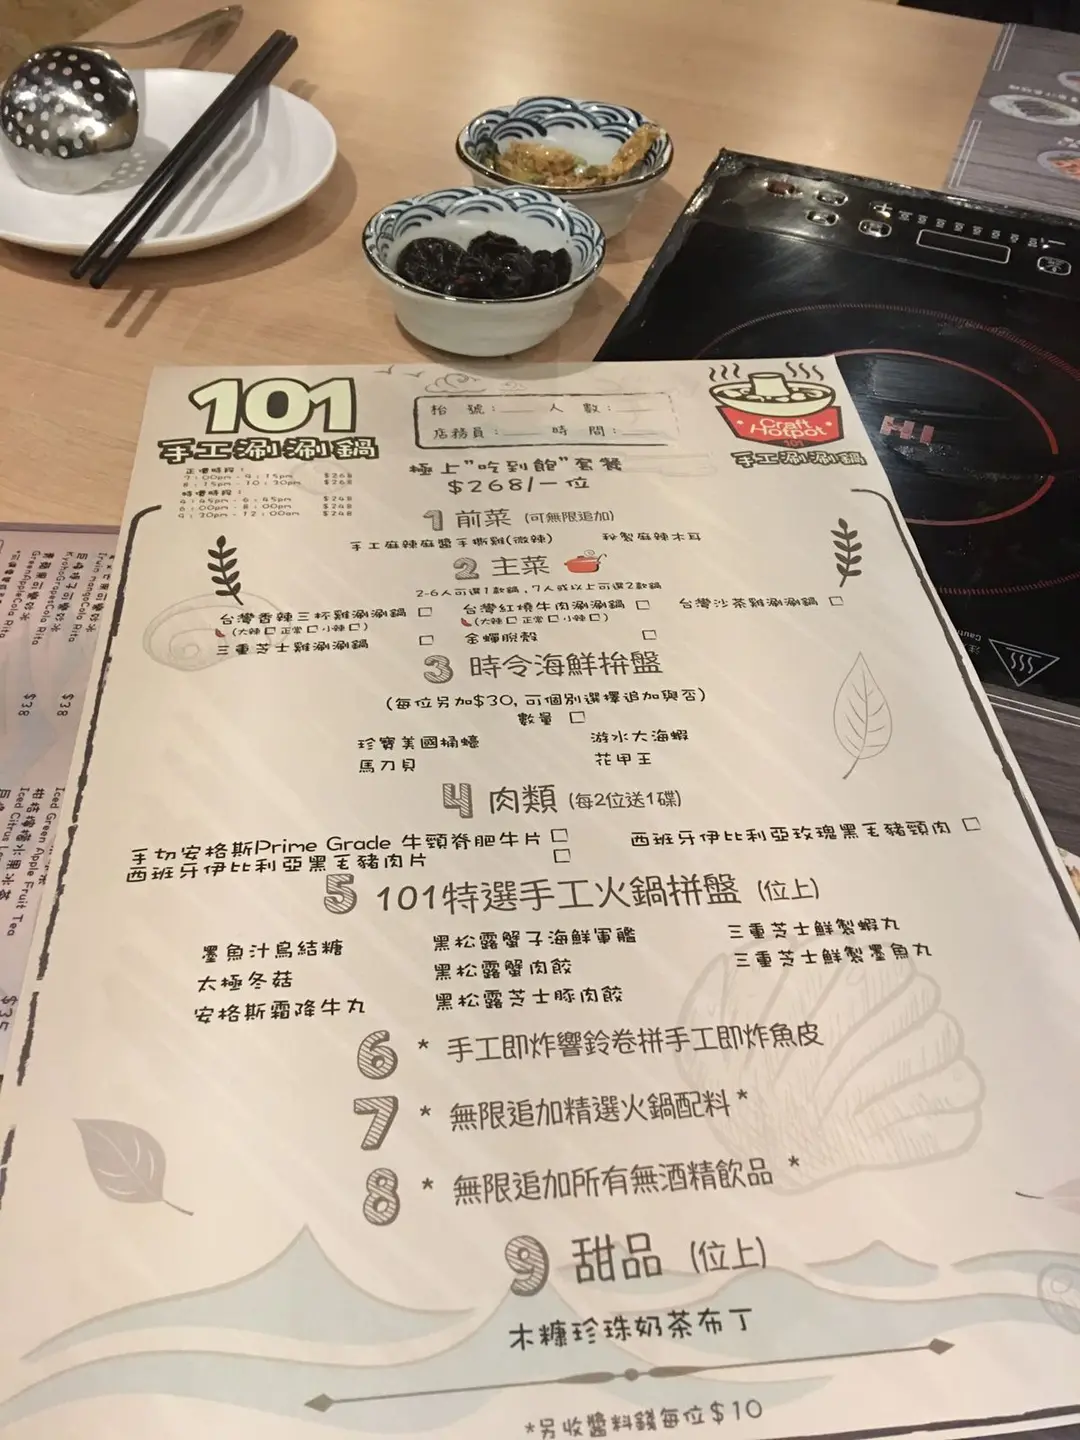 101
手工涮涮鍋
枱 號：___ 人 數：___
店務員：___ 時 間：___
Craft
Hotpot
101
手工涮涮鍋
正價時段：
7:00pm - 9:15pm $268
8:15pm - 10:30pm $268
特價時段：
4:45pm - 6:45pm $248
6:00pm - 8:00pm $248
9:30pm - 12:00am $248
極上"吃到飽"套餐
$268/一位
1 前菜 (可無限追加)
手工麻辣麻醬手撕雞(微辣) 秘製麻辣木耳
2 主菜
2-6人可選1款鍋，7人或以上可選2款鍋
台灣香辣三杯雞涮涮鍋 □ 台灣紅燒牛肉涮涮鍋 □ 台灣沙茶雞涮涮鍋 □
(大辣□ 正常□ 小辣□) (大辣□ 正常□ 小辣□)
三重芝士雞涮涮鍋 □ 金蟬脫殼 □
3 時令海鮮拚盤
(每位另加$30, 可個別選擇追加與否)
數量 □
珍寶美國桶蠔 游水大海蝦
馬刀貝 花甲王
4 肉類 (每2位送1碟)
手切安格斯Prime Grade 牛頸脊肥牛片 □ 西班牙伊比利亞玫瑰黑毛豬頸肉 □
西班牙伊比利亞黑毛豬肉片 □
5 101特選手工火鍋拼盤 (位上)
墨魚汁烏結糖 黑松露蟹子海鮮軍艦 三重芝士鮮製蝦丸
太極冬菇 黑松露蟹肉餃 三重芝士鮮製墨魚丸
安格斯霜降牛丸 黑松露芝士豚肉餃
6 * 手工即炸響鈴卷拼手工即炸魚皮
7 * 無限追加精選火鍋配料 *
8 * 無限追加所有無酒精飲品 *
9 甜品 (位上)
木糠珍珠奶茶布丁
*另收醬料錢每位$10